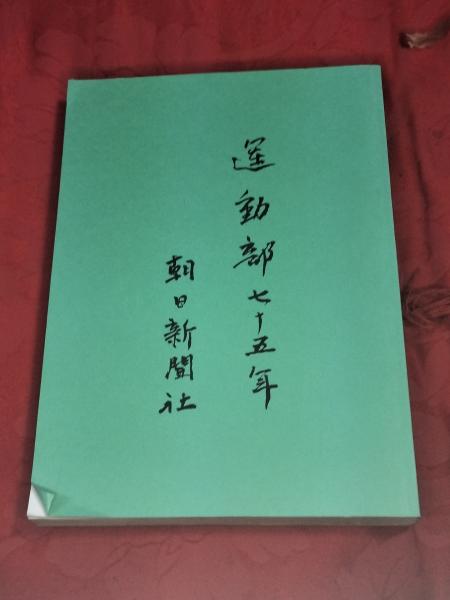 運動部七十五年
朝日新聞社